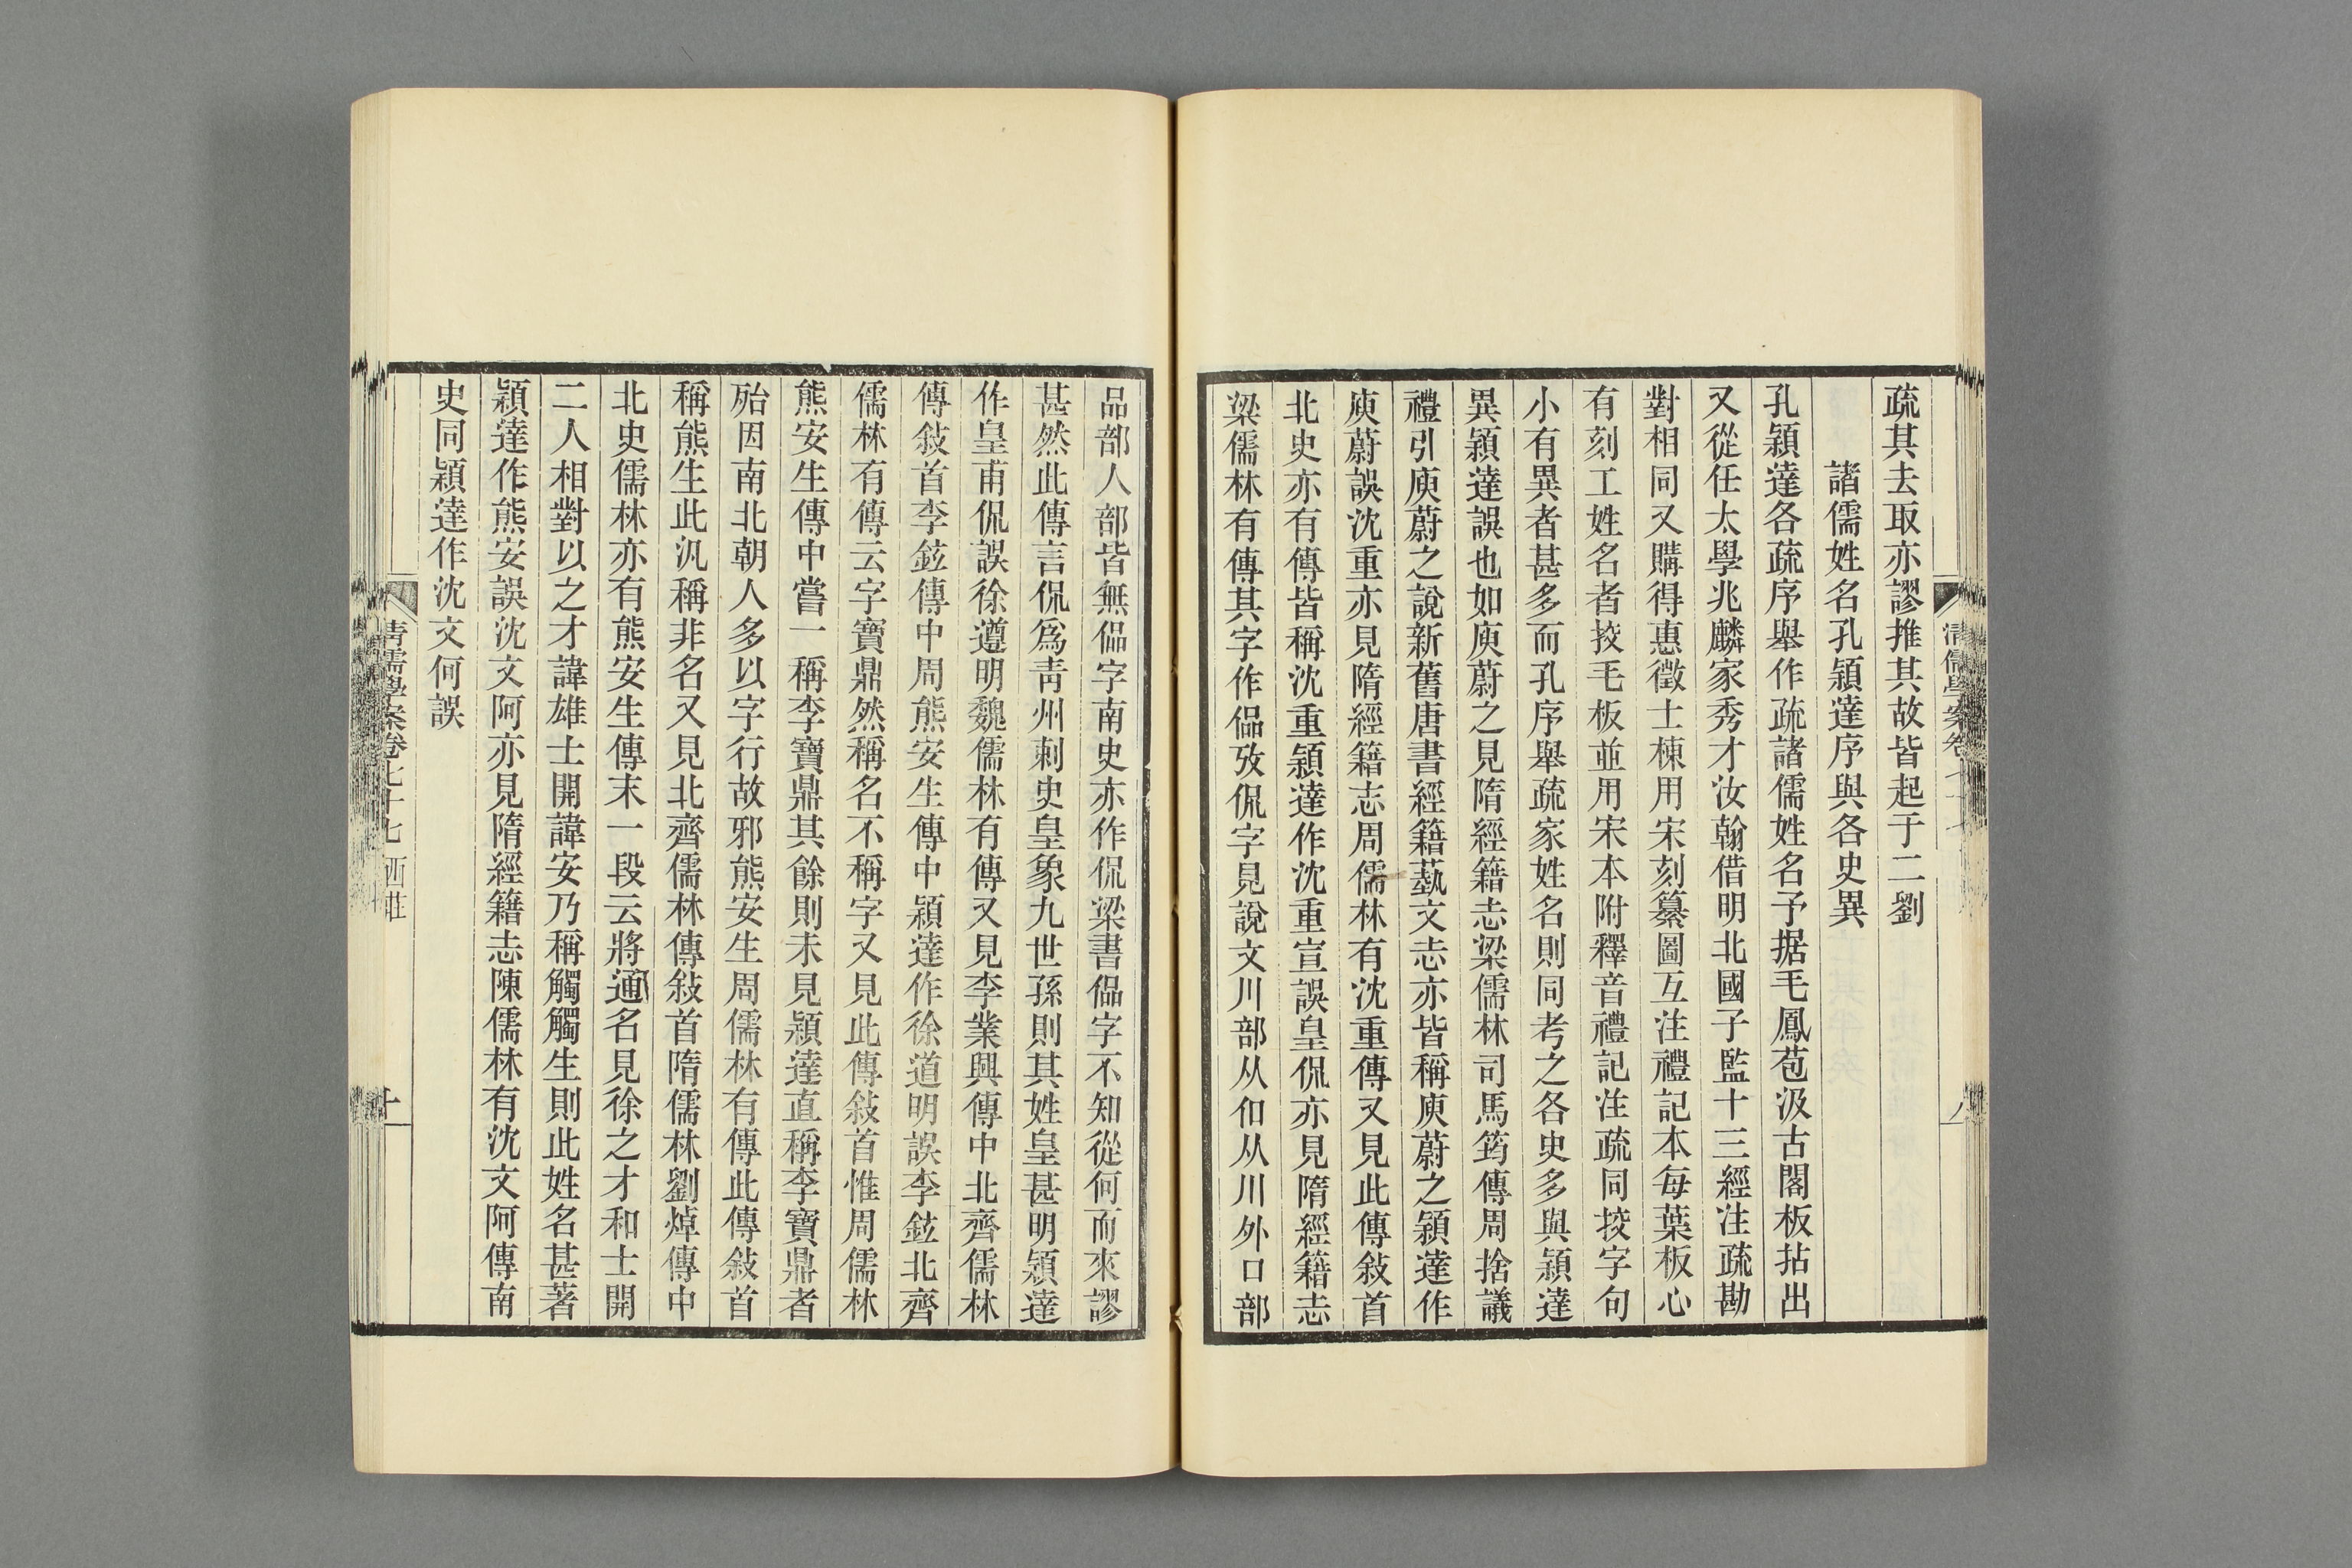 疏其去取亦謬推其故皆起于二劉
諸儒姓名孔穎達序與各史異
孔穎達各疏序舉作疏諸儒姓名予据毛鳳苞汲古閣板拈出
又從任太學兆麟家秀才汝翰借明北國子監十三經注疏勘
對相同又購得惠徵士棟用宋刻纂圖互注禮記本每葉板心
有刻工姓名者挍毛板並用宋本附釋音禮記注疏同挍字句
小有異者甚多而孔序舉疏家姓名則同考之各史多與穎達
異穎達誤也如庾蔚之見隋經籍志梁儒林司馬筠傳周捨議
禮引庾蔚之說新舊唐書經籍藝文志亦皆稱庾蔚之穎達作
庾蔚誤沈重亦見隋經籍志周儒林有沈重傳又見此傳敍首
北史亦有傳皆稱沈重穎達作沈重宣誤皇侃亦見隋經籍志
梁儒林有傳其字作偘攷侃字見說文川部从㐰从川外口部
品部人部皆無偘字南史亦作侃梁書偘字不知從何而來謬
甚然此傳言侃爲靑州剌史皇象九世孫則其姓皇甚明穎達
作皇甫侃誤徐遵明魏儒林有傳又見李業興傳中北齊儒林
傳敍首李鉉傳中周熊安生傳中穎達作徐道明誤李鉉北齊
儒林有傳云字寶鼎然稱名不稱字又見此傳敍首惟周儒林
熊安生傳中嘗一稱李寶鼎其餘則未見穎達直稱李寶鼎者
殆因南北朝人多以字行故邪熊安生周儒林有傳此傳敍首
稱熊生此汎稱非名又見北齊儒林傳敍首隋儒林劉焯傳中
北史儒林亦有熊安生傳末一段云將通名見徐之才和士開
二人相對以之才諱雄士開諱安乃稱觸觸生則此姓名甚著
穎達作熊安誤沈文阿亦見隋經籍志陳儒林有沈文阿傳南
史同穎達作沈文何誤
清儒學案卷七十七 西莊